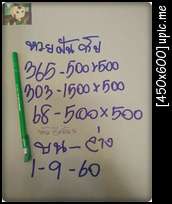 หวยฝันด้วย
365-500x500
303-1500x500
68-500x500
บน-ล่าง
1-9-60
[450x600] upic.me